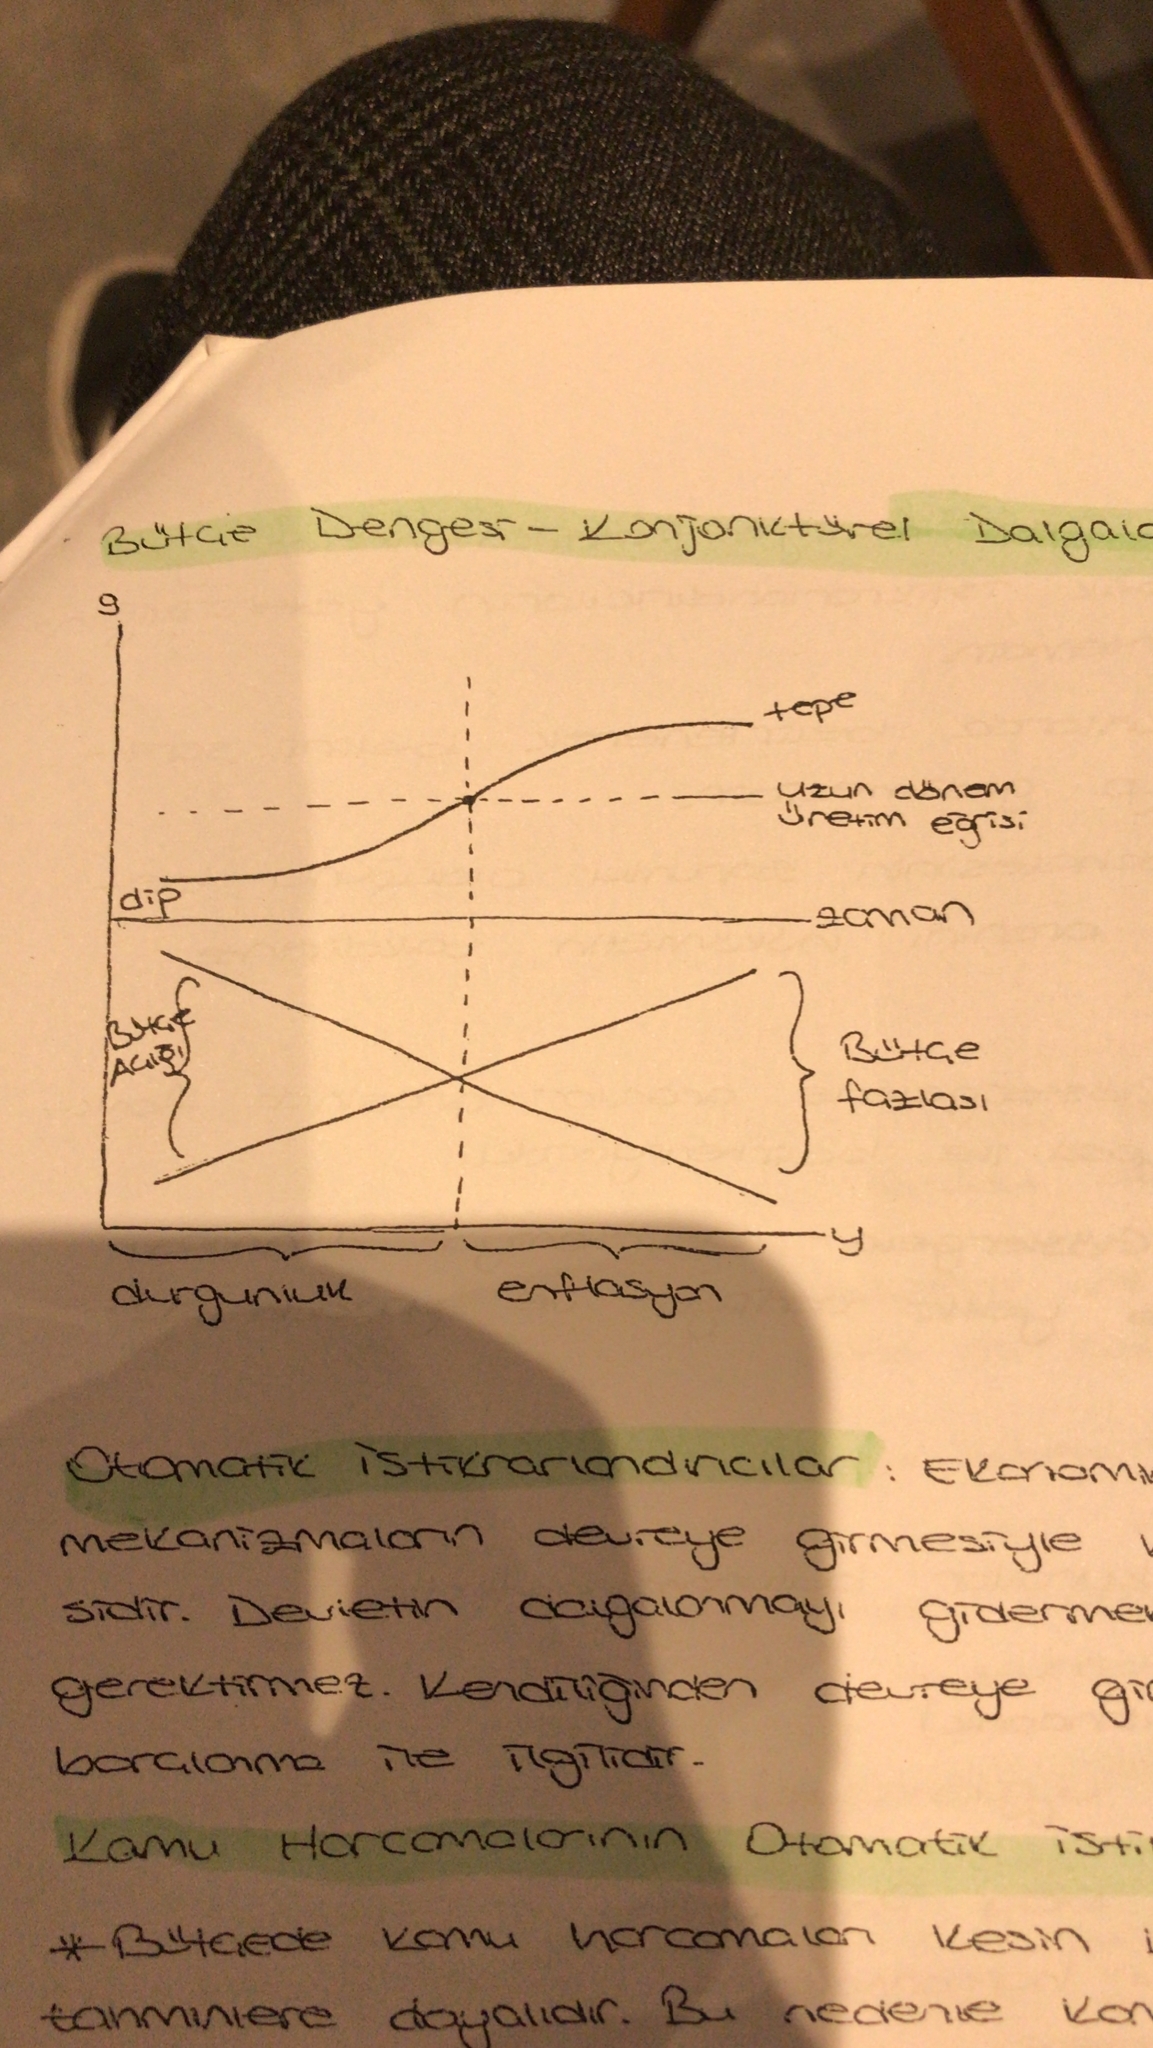 Bütçe Dengesi - Konjonktürel
g
tepe
uzun dönem
üretim eğrisi
dip
zaman
Bütçe
Açığı
Bütçe
fazlası
y
durgunluk
enflasyon
Otomatik istikrarlandırıcılar :
mekanizmaların devreye girmesiyle
sidir. Devletin dalgalanmayı
gerektirmez. Kendiliğinden devreye
borçlanma ile ilgilidir.
Kamu Harcamalarının Otomatik
* Bütçede kamu harcamaları kesin
tahminlere dayalıdır. Bu nedenle